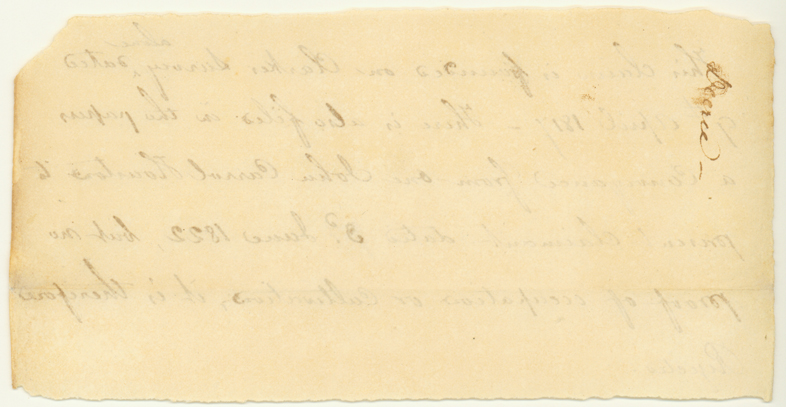 Decree —
alone
This claim is founded on Clarkes Survey, dated
9 April 1817 — There is also filed in the papers
a Conveyance from one John Carrol Houston to
present Claimant dated 3d June 1822, but no
proof of occupation or Cultivation, it is therefore